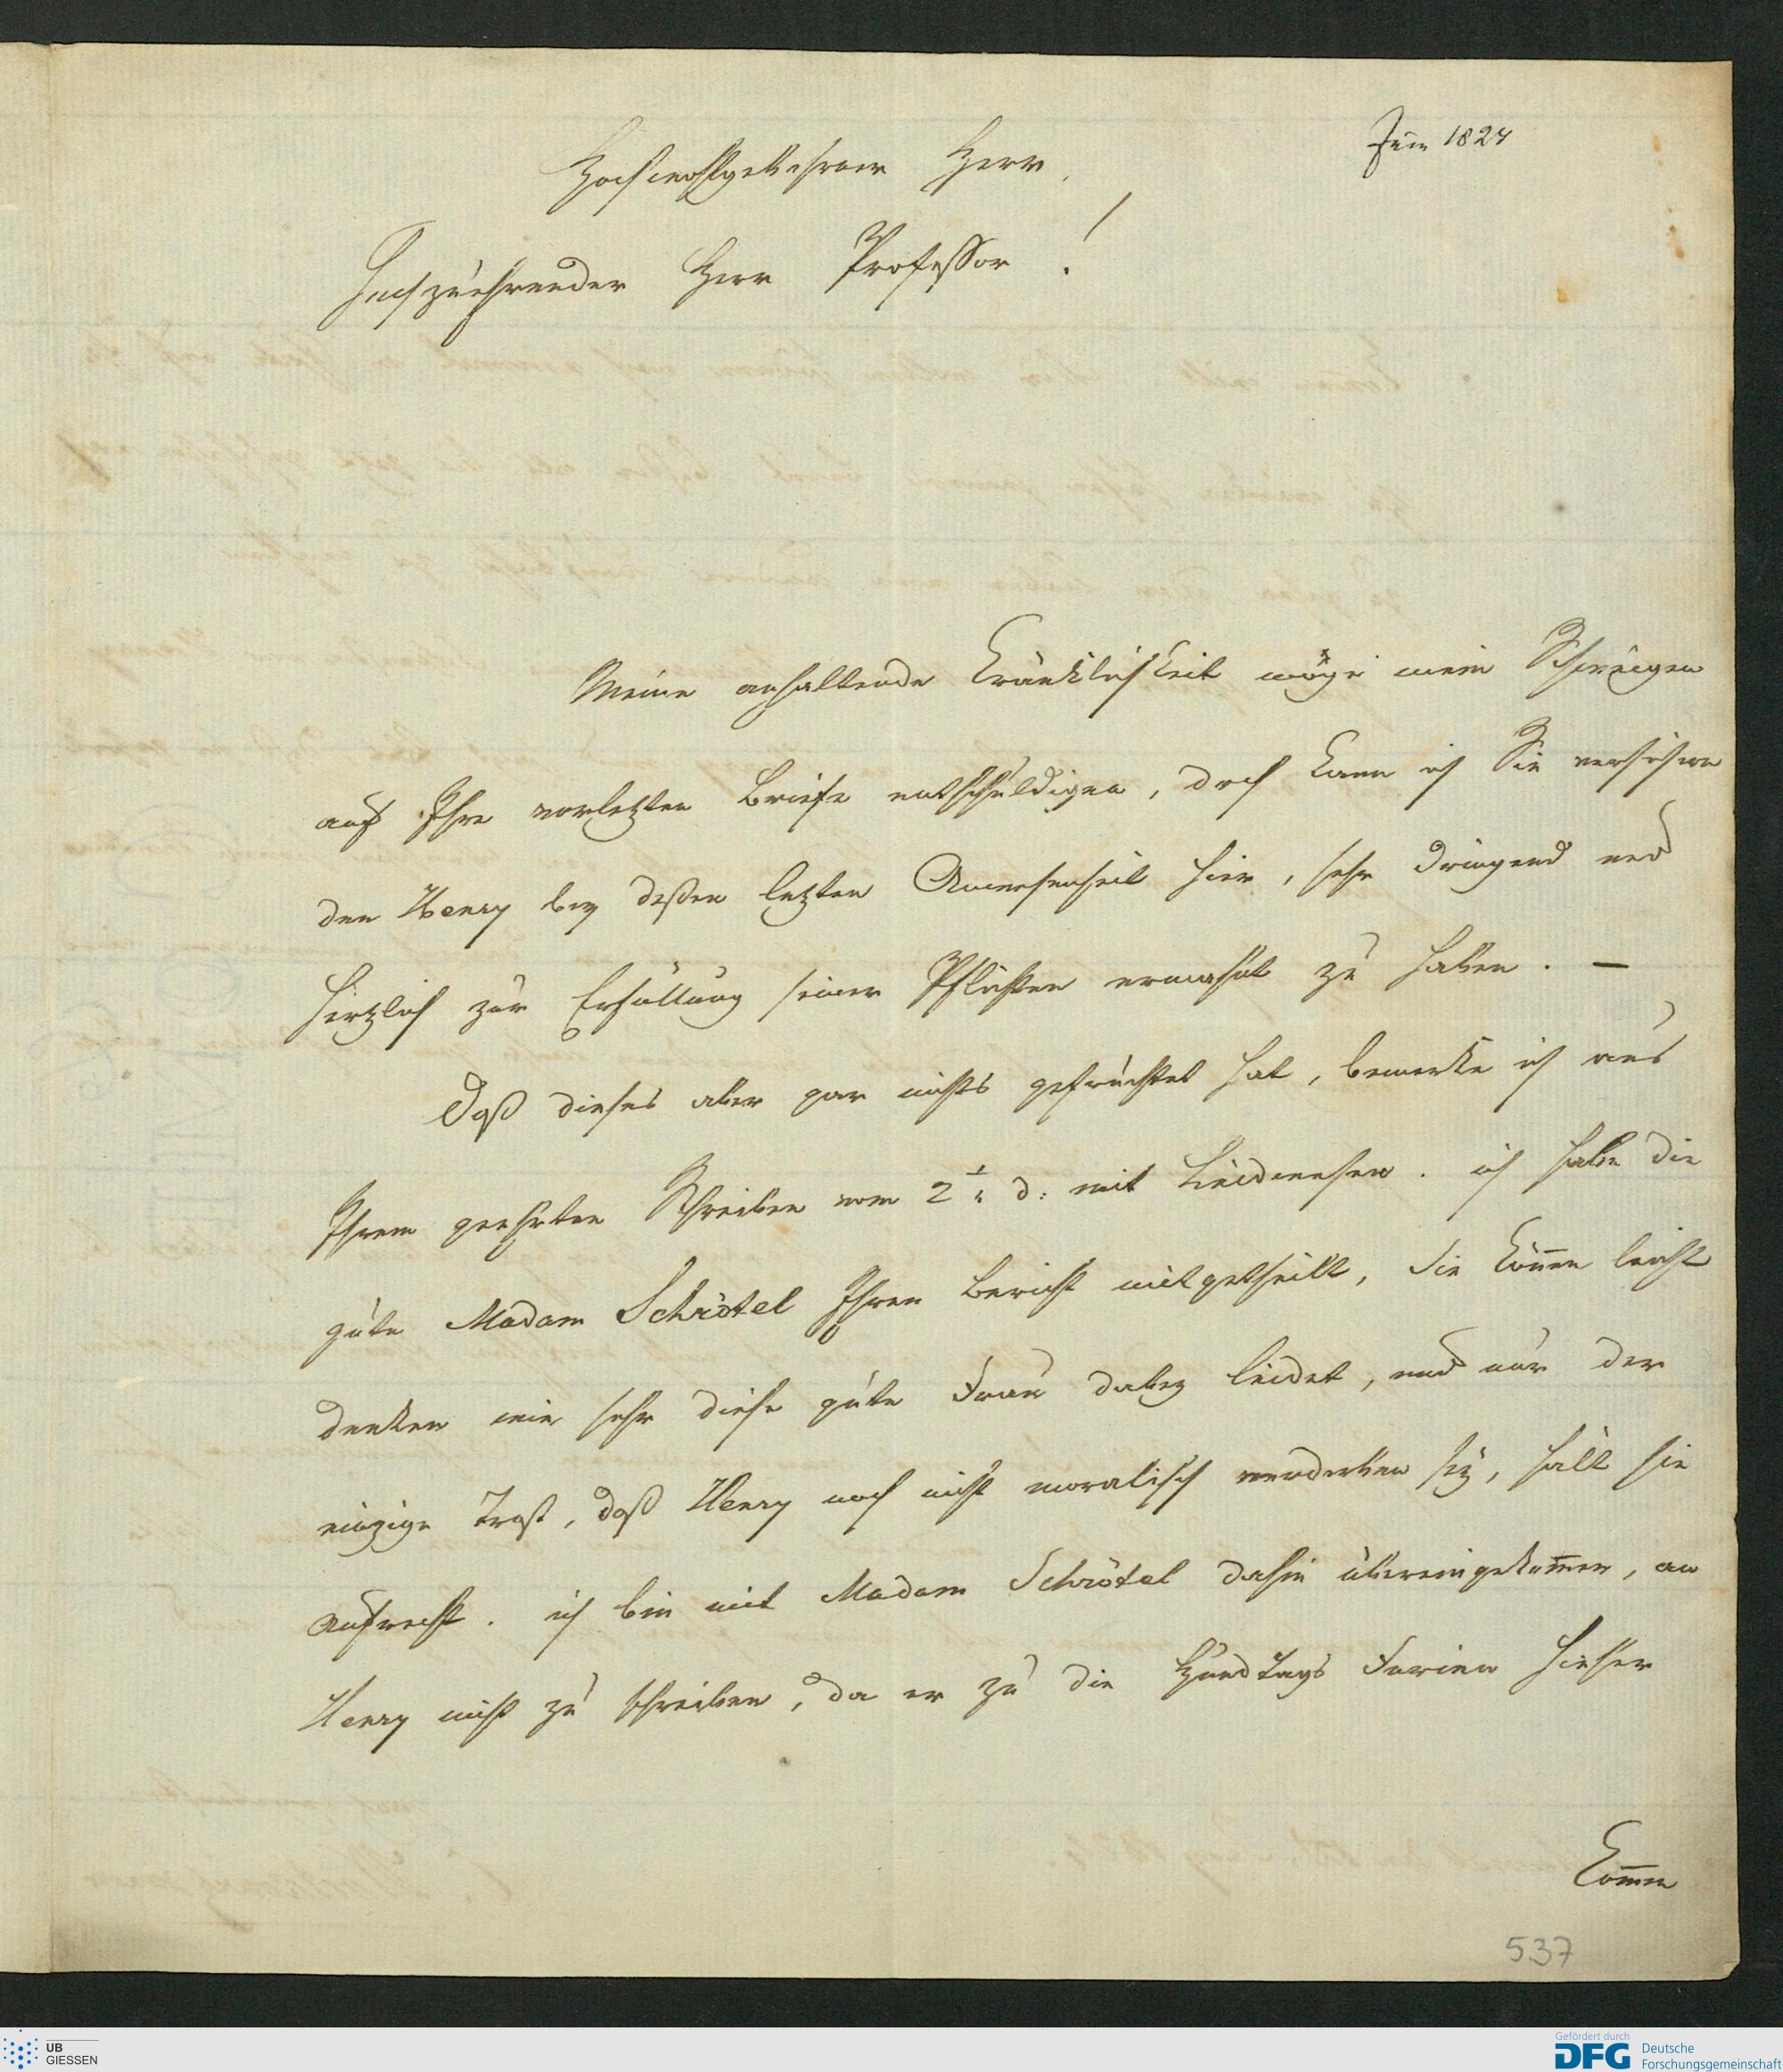 Juni 1824
Hochwohlgebohrner Herr,
Hochzuehrender Herr Professor!
Meine anhaltende Kränklichkeit möge mein Schweigen
auf Ihre vorletzten Briefe entschuldigen, doch kann ich Sie versichern
den Henry bey deßen letzten Anwesenheit hier, sehr dringend und
herzlich zur Erfüllung seiner Pflichten ermahnt zu haben. —
Daß dieses aber gar nichts gefruchtet hat, bemerke ich aus
Ihrem geehrten Schreiben vom 2 d: mit Leidwesen. ich habe die
gute Madam Schrötel Ihren Bericht mitgetheilt, Sie können leicht
denken wie sehr diese gute Frau dabey leidet, und nur der
einzige Trost, daß Henry noch nicht moralisch verdorben sey, hält sie
aufrecht. ich bin mit Madam Schrötel dahin übereingekom̅en, an
Henry nicht zu schreiben, da er zu die Hundtags Ferien hieher
kom̅en
537
UB
GIESSEN
Gefördert durch
DFG Deutsche
Forschungsgemeinschaft